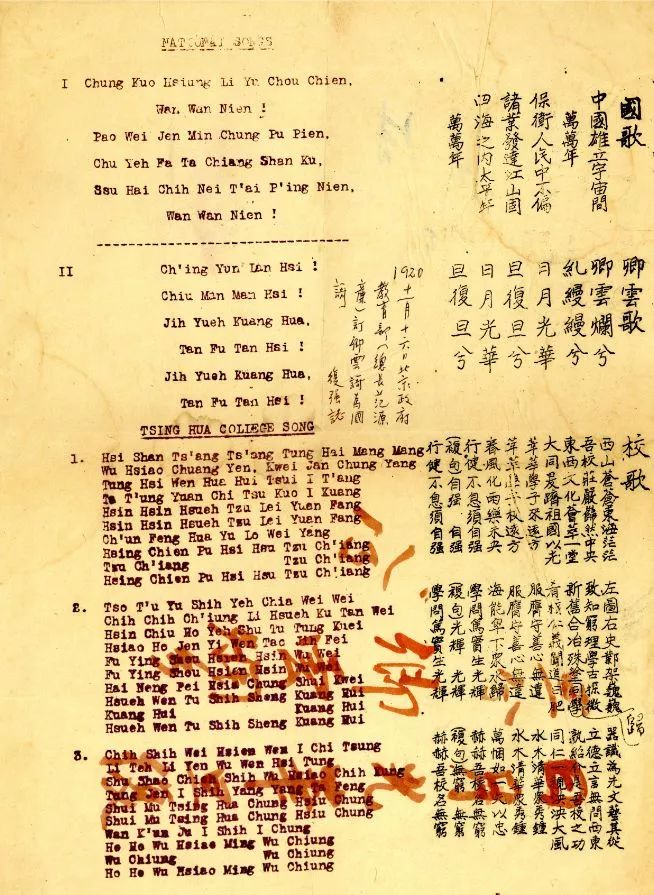 NATIONAL SONGS
I Chung Kuo Hsiung Li Yu Chou Chien,
Wan Wan Nien !
Pao Wei Jen Min Chung Pu Pien,
Chu Yeh Fa Ta Chiang Shan Ku,
Ssu Hai Chih Nei T'ai P'ing Nien,
Wan Wan Nien !
II Ch'ing Yun Lan Hsi !
Chiu Man Man Hsi !
Jih Yueh Kuang Hua,
Tan Fu Tan Hsi !
Jih Yueh Kuang Hua,
Tan Fu Tan Hsi !
TSING HUA COLLEGE SONG
1. Hsi Shan Ts'ang Ts'ang Tung Hai Mang Mang
Wu Hsiao Chuang Yen, Kwei Jan Chung Yang
Tung Hsi Wen Hua Hui Tsui I T'ang
Ta T'ung Yuan Chi Tsu Kuo I Kuang
Hsin Hsin Hsueh Tzu Lei Yuan Fang
Hsin Hsin Hsueh Tzu Lei Yuan Fang
Ch'un Feng Hua Yu Lo Wei Yang
Hsing Chien Pu Hsi Hsu Tzu Ch'iang
Tzu Ch'iang Tzu Ch'iang
Hsing Chien Pu Hsi Hsu Tzu Ch'iang
2. Tso T'u Yu Shih Yeh Chia Wei Wei
Chih Chih Ch'iung Li Hsueh Ku Tan Wei
Hsin Chiu Ho Yeh Shu Tu Tung Kuei
Hsiao Ho Jen Yi Wen Tao Jih Fei
Fu Ying Shou Hsien Hsin Wu Wei
Fu Ying Shou Hsien Hsin Wu Wei
Hai Neng Pei Hsia Chung Shui Kwei
Hsueh Wen Tu Shih Sheng Kuang Hui
Kuang Hui Kuang Hui
Hsueh Wen Tu Shih Sheng Kuang Hui
3. Chih Shih Wei Hsien Wen I Chi Tsung
Li Teh Li Yen Wu Wen Hsi Tung
Shu Shao Chieh Shih Wu Hsiao Chih Kung
Tung Jen I Shih Yang Yang Ta Feng
Shui Mu Tsing Hua Chung Hsiu Chung
Shui Mu Tsing Hua Chung Hsiu Chung
Wan K'un Ju I Shih I Chung
He He Wu Hsiao Ming Wu Chiung
Wu Chiung Wu Chiung
Ho He Wu Hsiao Ming Wu Chiung
國歌
中國雄立宇宙間
萬萬年
保衛人民中不偏
諸業發達江山國
四海之內太平年
萬萬年
卿雲歌
卿雲爛兮
糺縵縵兮
日月光華
旦復旦兮
日月光華
旦復旦兮
1920
十一月十六日北京政府
教育部(總長范源
廉)訂卿雲謌為國
謌 復強誌
校歌
西山蒼蒼東海茫茫
吾校莊嚴巋然中央
東西文化薈萃一堂
大同爰躋祖國以光
莘莘學子來遠方
莘莘學子來遠方
春風化雨樂未央
行健不息須自强
(複句自强 自强
行健不息須自强
左圖右史鄴架巍巍
致知窮理學古探微
新舊合冶殊途同歸
服膺守善心無違
服膺守善心無違
海能卑下衆水歸
學問篤實生光輝
(複句光輝 光輝
學問篤實生光輝
器識為先文藝其從
立德立言無問西東
孰紹介是吾校之功
同仁一視泱泱大風
水木清華衆秀鍾
水木清華衆秀鍾
萬悃如一矢以忠
赫赫吾校名無窮
(複句無窮 無窮
赫赫吾校名無窮